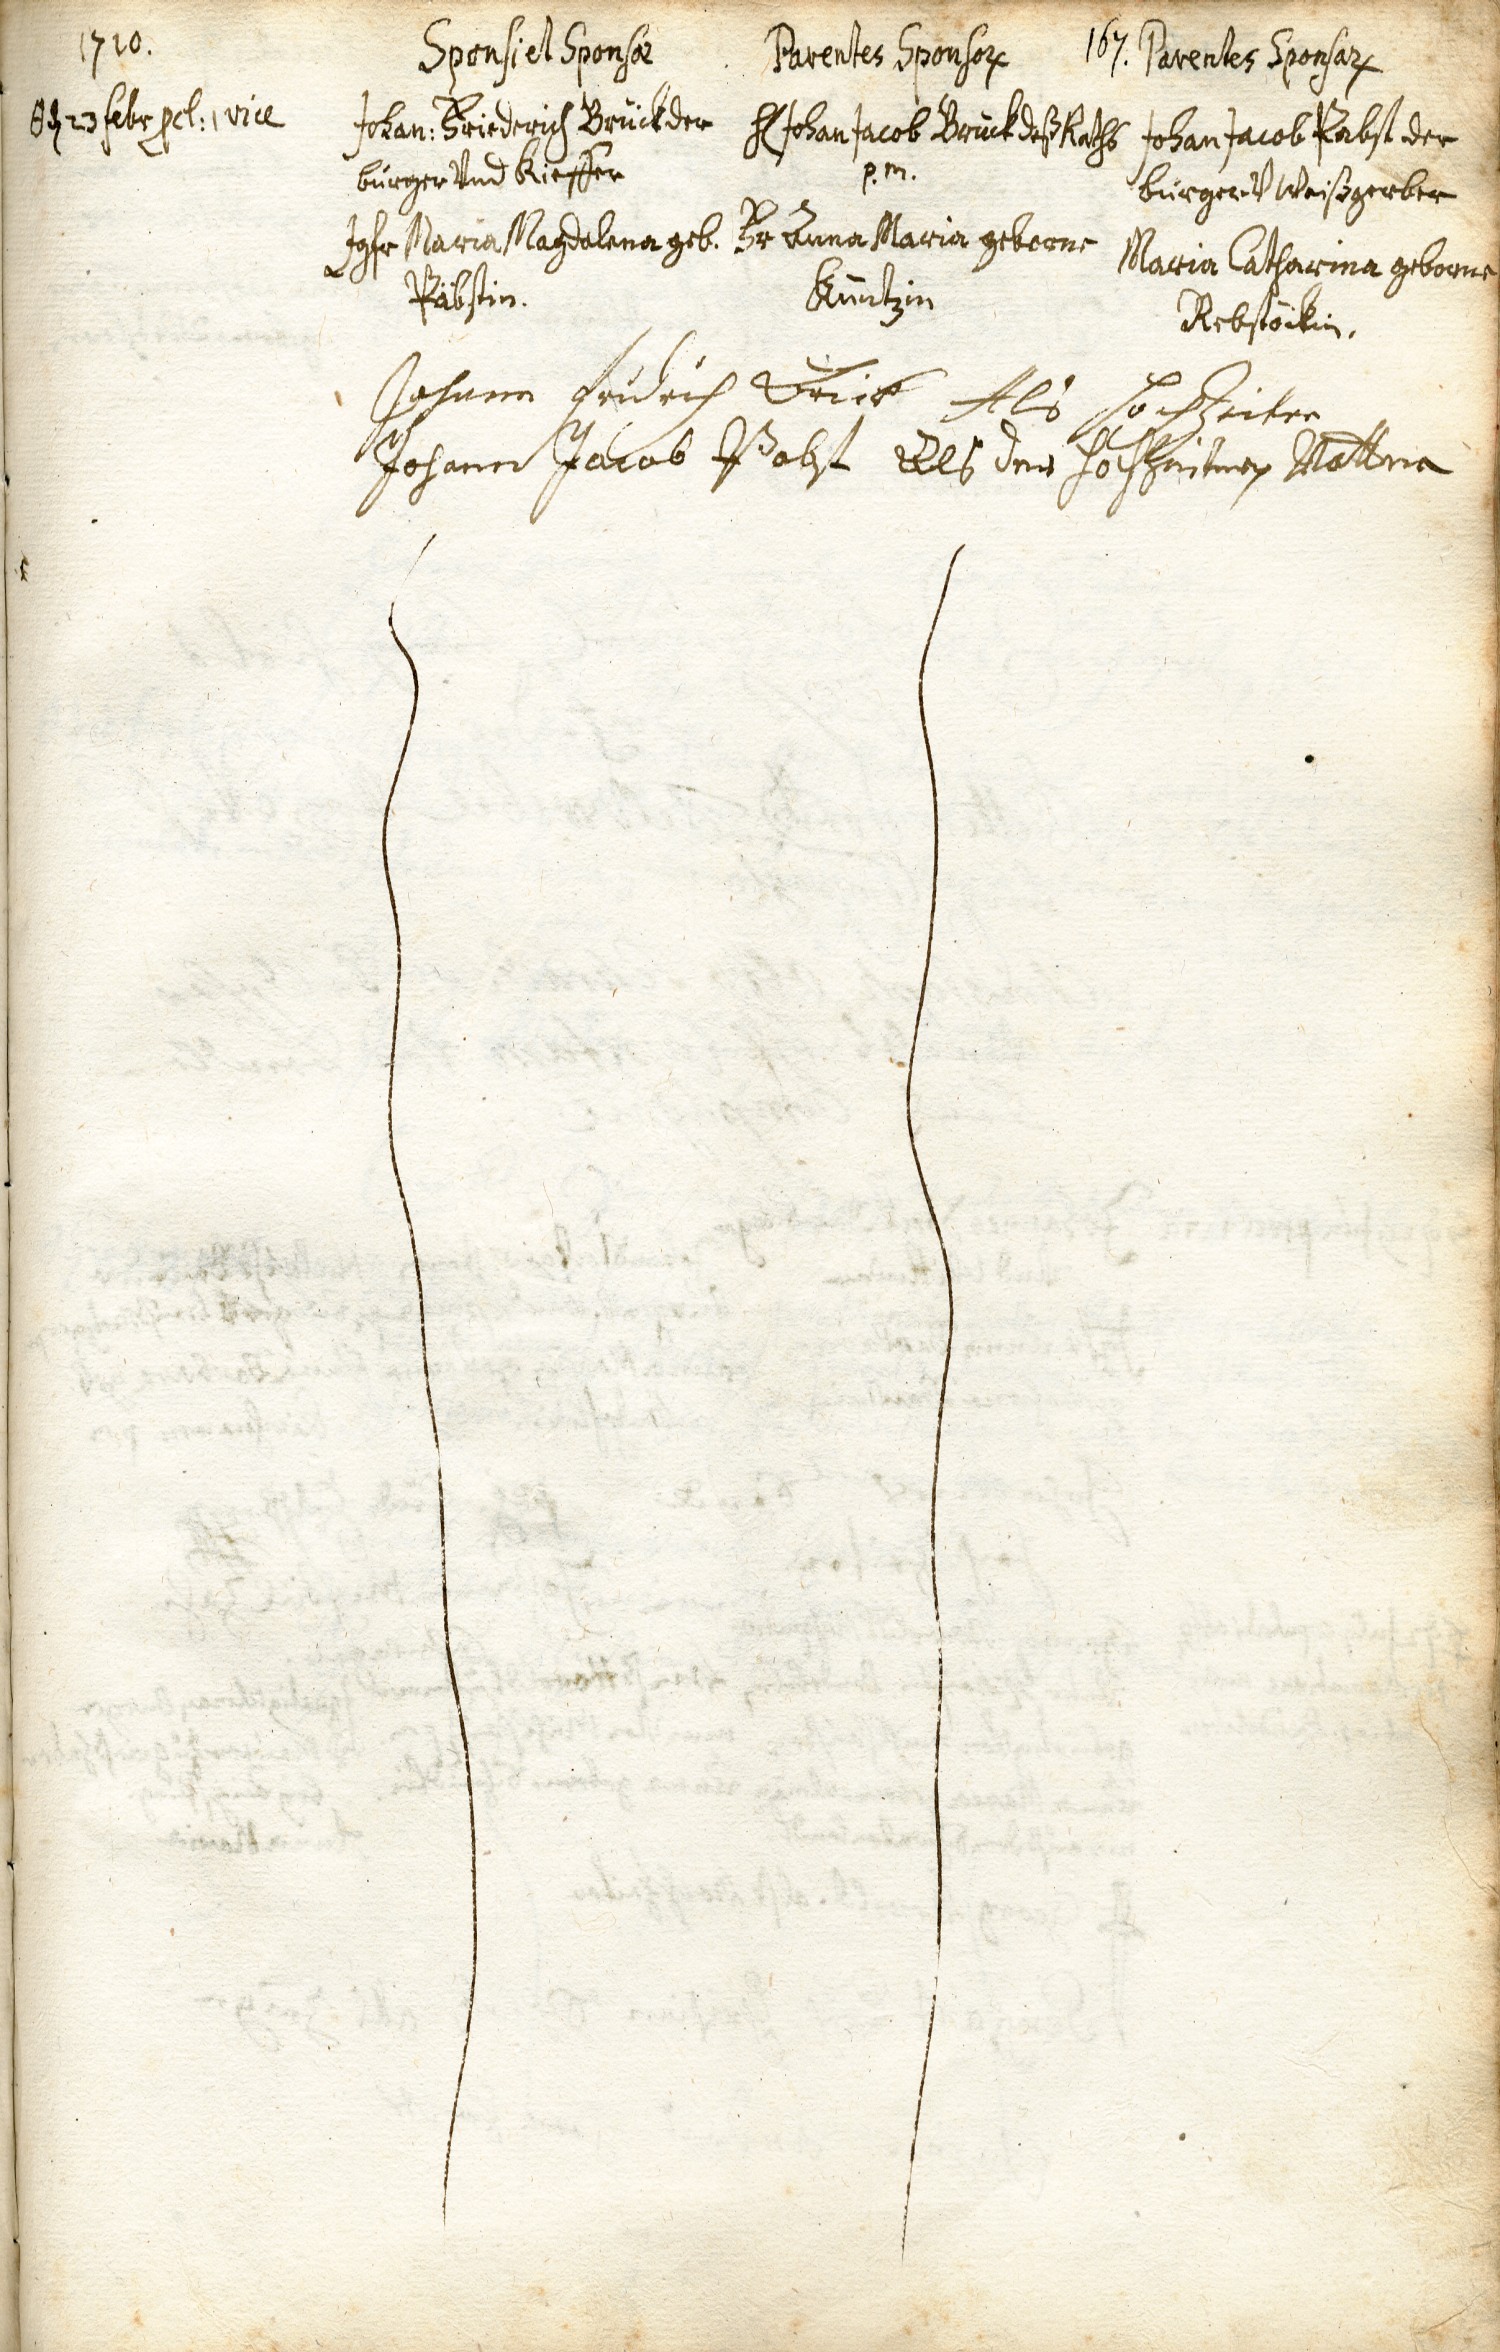 1720.
Sponsi et Sponsæ
Parentes Sponsor
167. Parentes Sponsar
23 febr pcl: 1 vice
Johan: Friederich Brück der
bürger Und Kieffer
Jgfr Maria Magdalena geb.
Päbstin.
H Johan Jacob Brück deß Raths
p. m.
Fr Anna Maria geborne
Küntzin
Johan Jacob Pabst der
bürger V Weißgerber
Maria Catharina geborne
Rebstöckin.
Johann fridrich Brick Als hochzeiter
Johann Jacob Pabst Als der hochzeiterin Vatter